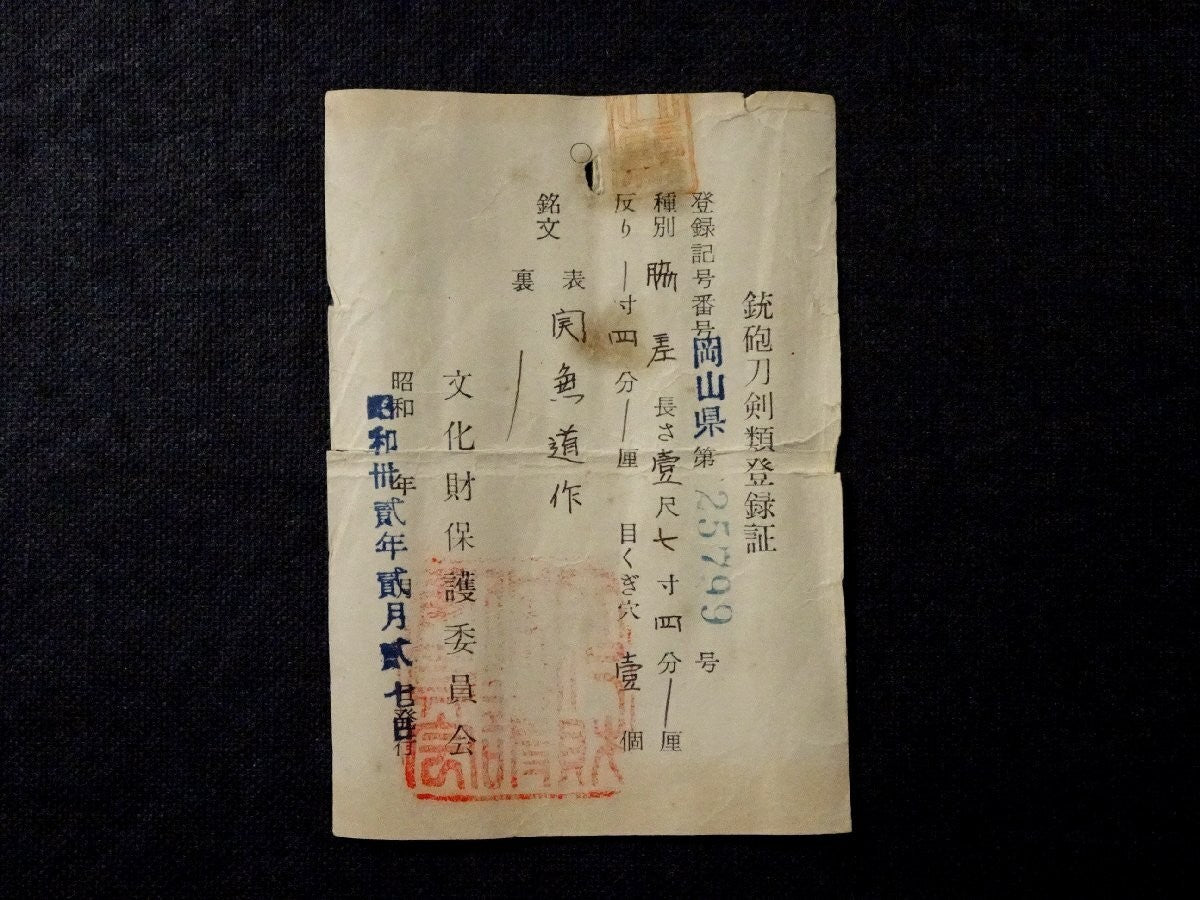 銃砲刀剣類登録証
登録記号番号 岡山県 第 25799 号
種別 脇差 長さ 壹尺七寸四分 — 厘
反り — 寸四分 — 厘 目くぎ穴 壹個
銘文
表 関兼道作
裏 —
文化財保護委員会
昭和 年 月 日発行
昭和卅貳年貳月貳七日